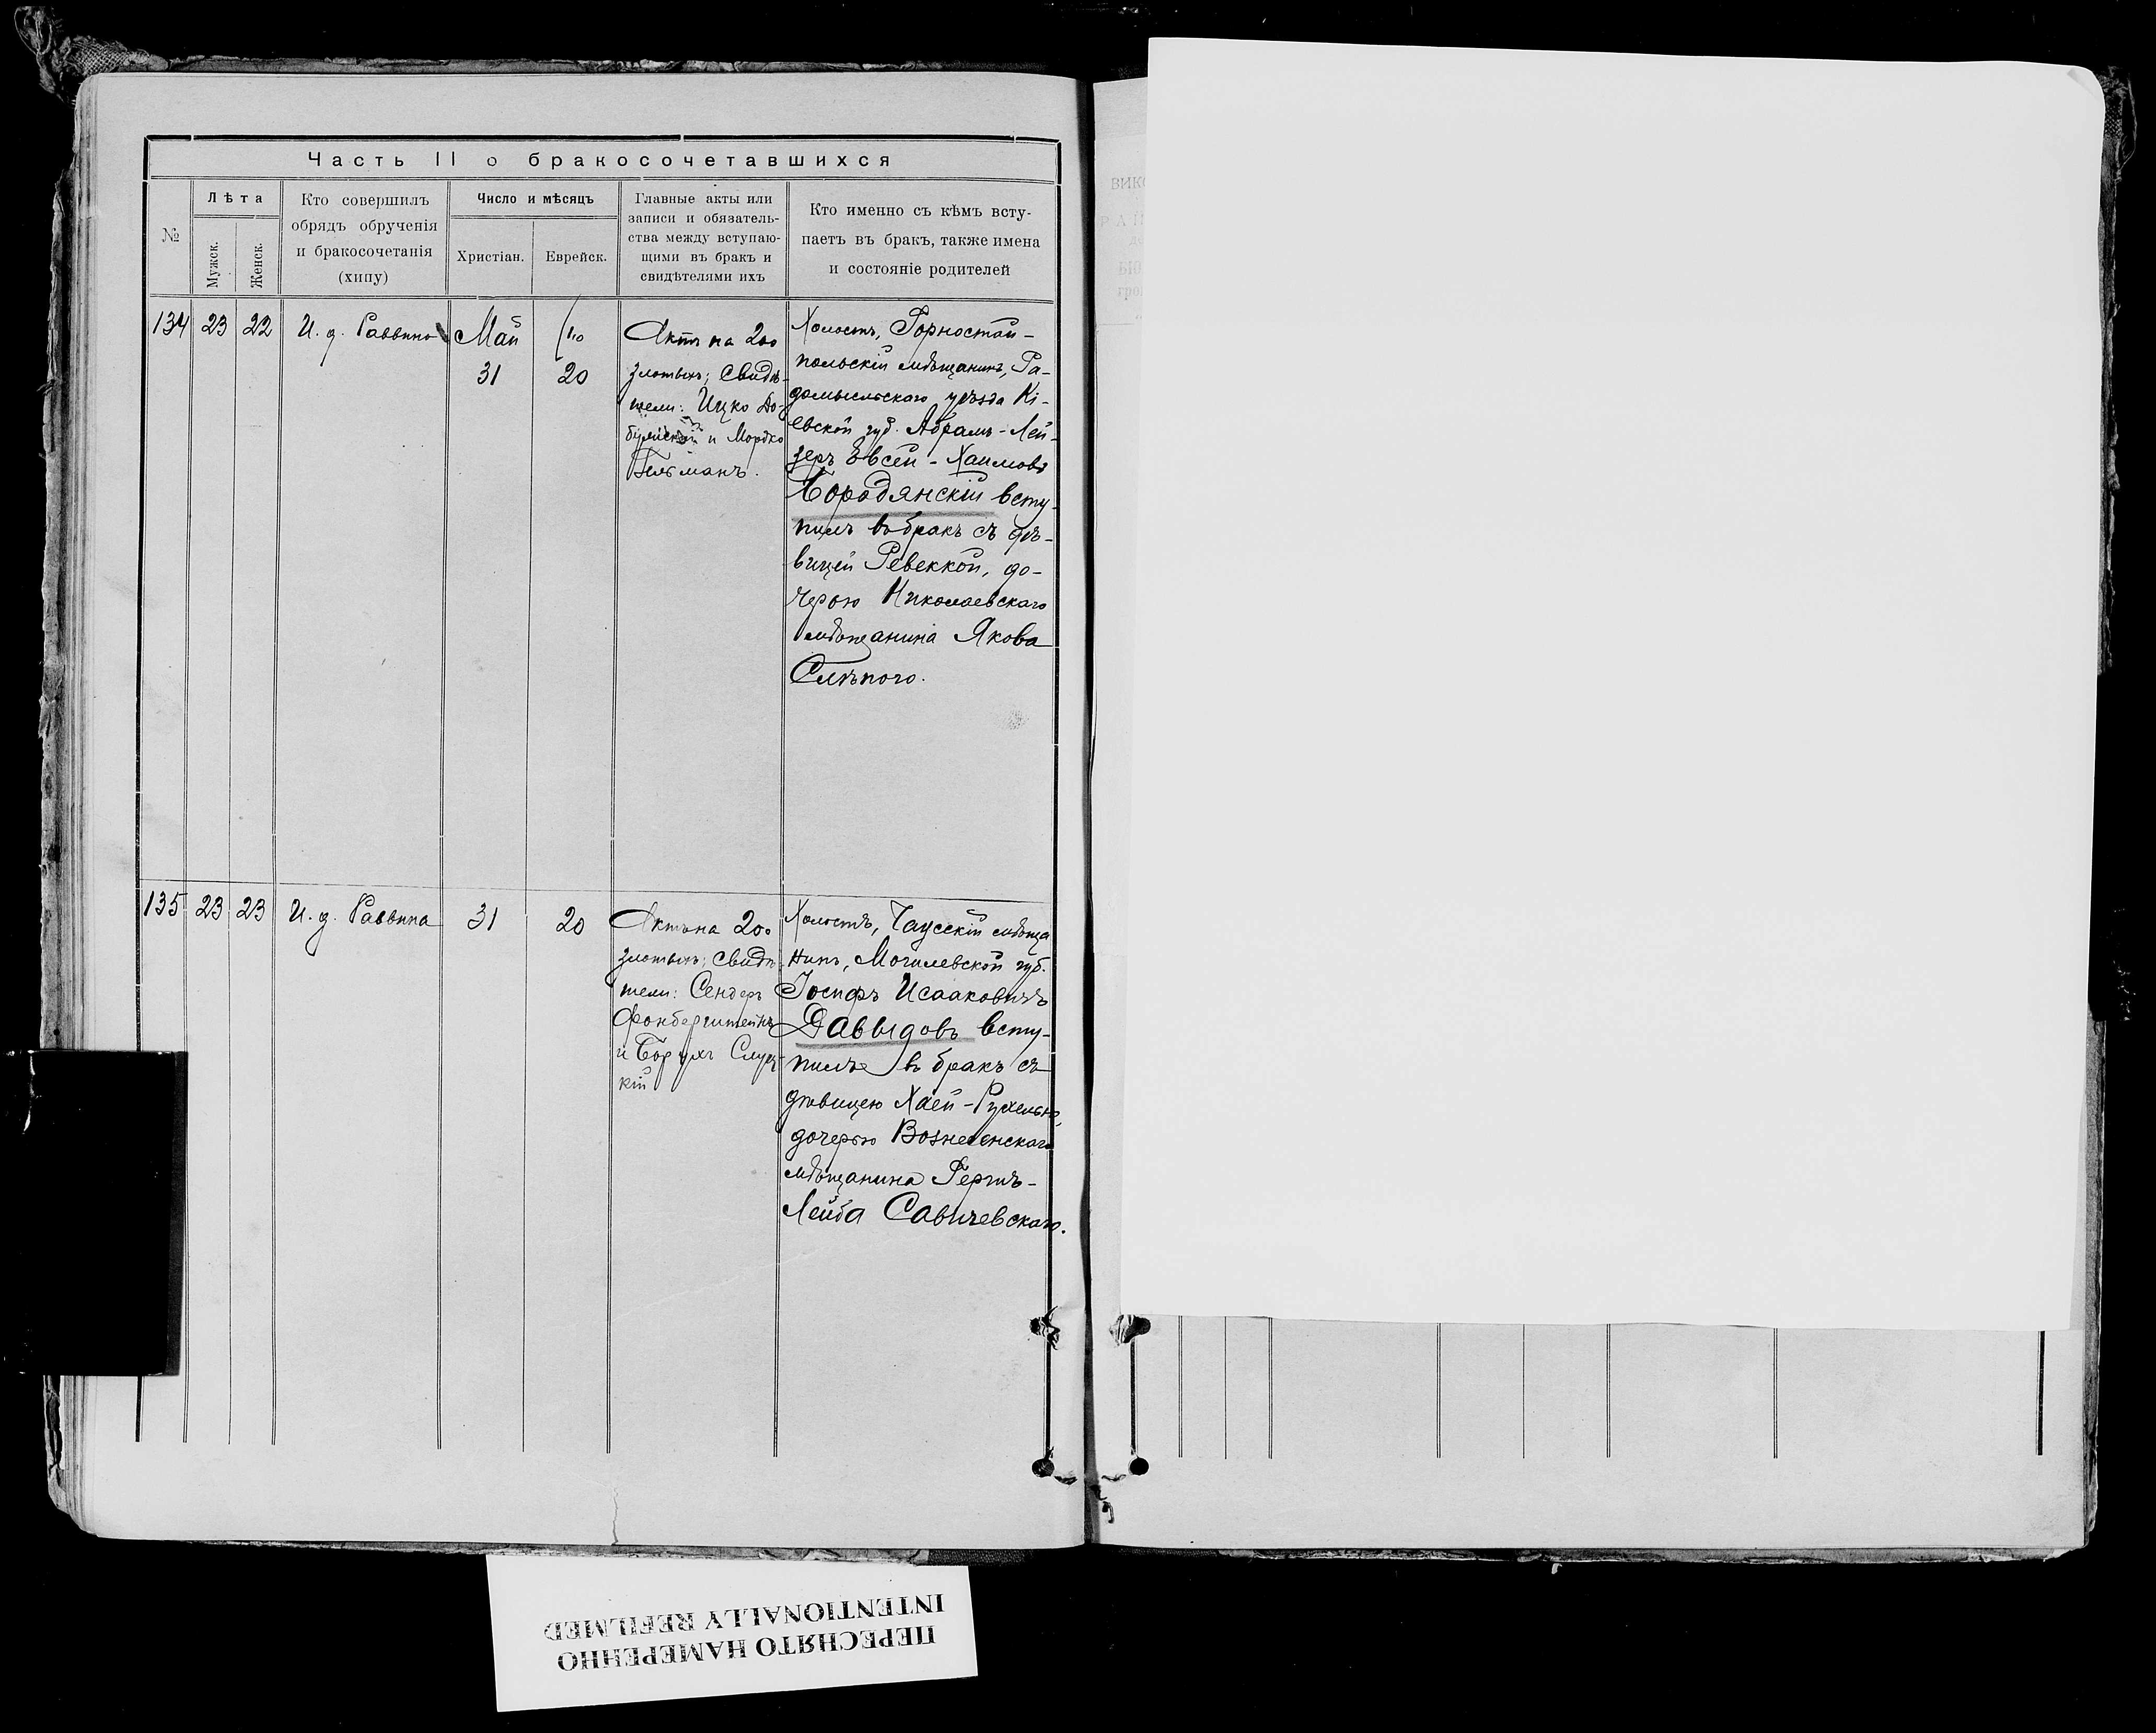 Часть II о бракосочетавшихся
№
Лѣта
Мужск.
Женск.
Кто совершилъ
обрядъ обрученія
и бракосочетанія
(хипу)
Число и мѣсяцъ
Христіан.
Еврейск.
Главные акты или
записи и обязатель-
ства между вступаю-
щими въ бракъ и
свидѣтелями ихъ
Кто именно съ кѣмъ всту-
паетъ въ бракъ, также имена
и состояніе родителей
134
23
22
И. д. Раввина
Май
31
20
Актъ на 200
злотыхъ; свидѣ-
тели: Ицко
и Мордко
Гельманъ.
Холостъ, Горностай-
польскій мѣщанинъ, Ра-
домысльскаго уѣзда Кі-
евской губ. Абрамъ-Лей-
зеръ Евсей-Хаимовъ
Бородянскій всту-
пилъ въ бракъ съ дѣ-
вицей Ревеккой, до-
черью Николаевскаго
мѣщанина Якова
Слѣпого.
135
23
23
И. д. Раввина
31
20
Актъ на 200
злотыхъ; свидѣ-
тели: Сендеръ
Фонберштейнъ
и Борухъ Слуц-
кій
Холостъ, Чаусскій мѣща
нинъ, Могилевской губ.
Іосифъ Исааковичъ
Давыдовъ всту-
пилъ въ бракъ съ
дѣвицею Хаей-Рухелью,
дочерью Вознесенскаго
мѣщанина Гершъ-
Лейба Савичевскаго.
ПЕРЕСНЯТО НАМЕРЕННО
INTENTIONALLY REFILMED